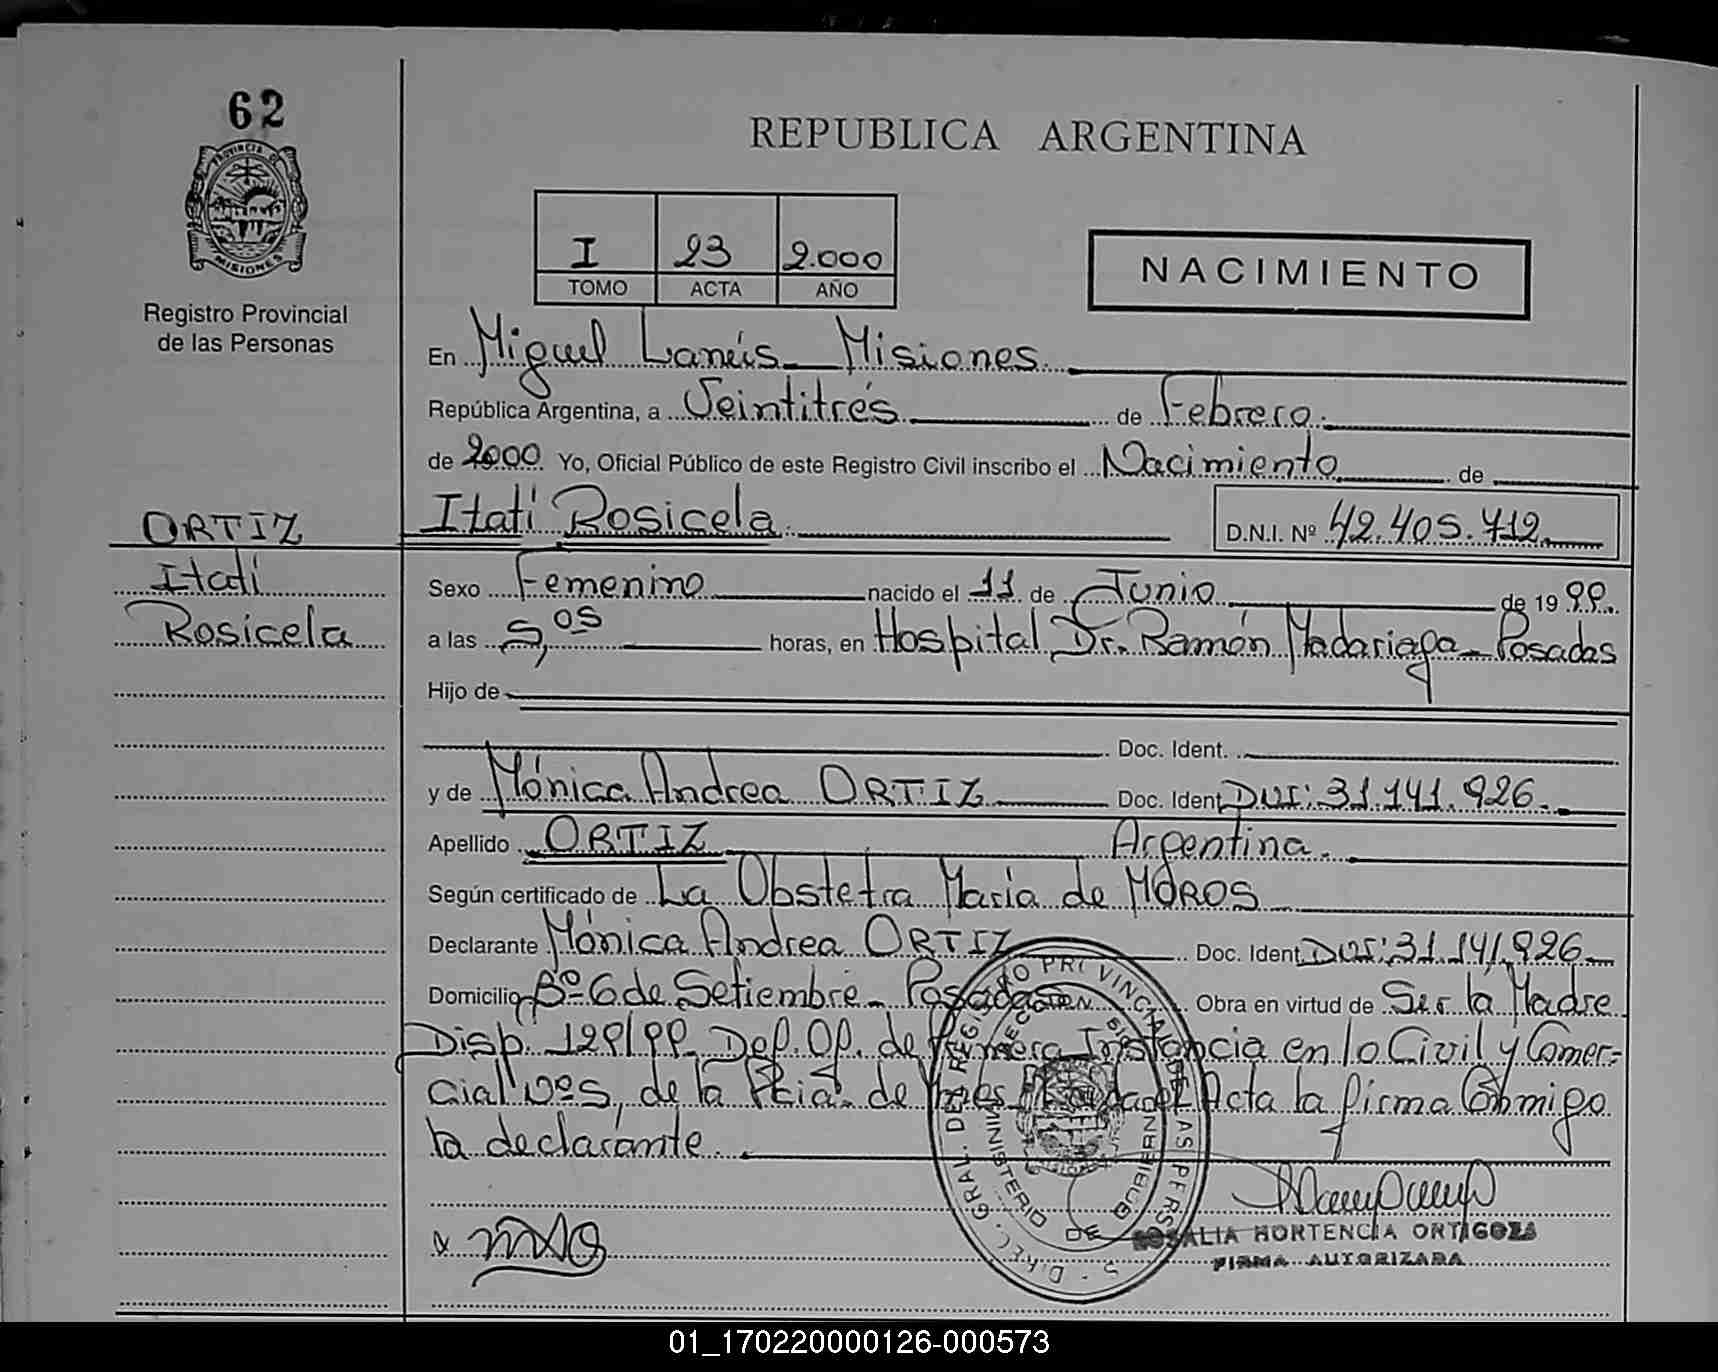 62
PROVINCIA DE
MISIONES
Registro Provincial
de las Personas
REPUBLICA ARGENTINA
I 23 2.000
TOMO ACTA AÑO
NACIMIENTO
En Miguel Lanús - Misiones.
República Argentina, a Veintitrés de Febrero.
de 2000 Yo, Oficial Público de este Registro Civil inscribo el Nacimiento de
Itatí Rosicela D.N.I. Nº 42.405.712
ORTIZ
Itatí
Rosicela
Sexo Femenino nacido el 11 de Junio de 19 99.
a las 5,05 horas, en Hospital Dr. Ramón Madariaga - Posadas
Hijo de
Doc. Ident.
y de Mónica Andrea ORTIZ Doc. Ident DNI: 31.141.926.
Apellido ORTIZ Argentina.
Según certificado de La Obstetra María de MOROS
Declarante Mónica Andrea ORTIZ Doc. Ident DNI: 31.141.926
Domicilio Bº 6 de Setiembre - Posadas Obra en virtud de Ser la Madre
Disp. 129/99 Def. Of. de Primera Instancia en lo Civil y Comer-
cial Nº 5, de la Pcia. de Mnes Acta la firma Conmigo
la declarante.
ROSALIA HORTENCIA ORTIGOZA
FIRMA AUTORIZADA
DIREC. GRAL. DEL REGISTRO PROVINCIAL DE LAS PERSONAS
MINISTERIO DE GOBIERNO
01_170220000126-000573